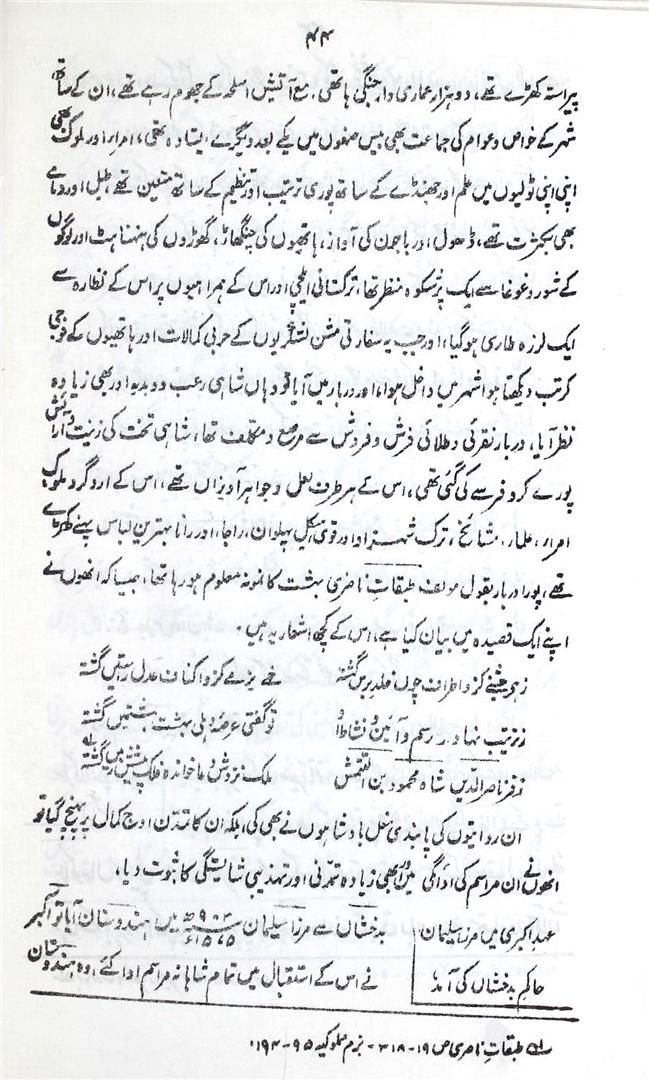 ۴۴
پیراستہ کھڑے تھے، دو ہزار عماری دار جنگی ہاتھی مع آتشیں اسلحہ کے جھوم رہے تھے، ان کے ساتھ
شہر کے خواص و عوام کی جماعت بھی بیس صفوں میں یکے بعد دیگرے ایستادہ تھی، امراء اور ملوک بھی
اپنی اپنی ٹولیوں میں علم اور جھنڈے کے ساتھ پوری ترتیب اور تنظیم کے ساتھ متعین تھے، طبل اور دمامے
بھی بکثرت تھے، ڈھول اور باجوں کی آواز، ہاتھیوں کی چنگھاڑ، گھوڑوں کی ہنہناہٹ اور لوگوں
کے شور و غوغا سے ایک پرشکوہ منظر تھا، ترکستانی ایلچی اور اس کے ہمراہیوں پر اس کے نظارہ سے
ایک لرزہ طاری ہو گیا، اور جب یہ سفارتی مشن لشکریوں کے حربی کمالات اور ہاتھیوں کے فوجی
کرتب دیکھتا ہوا شہر میں داخل ہوا، اور دربار میں آیا تو وہاں شاہی رعب و دبدبہ اور بھی زیادہ
نظر آیا، دربار نقرئی و طلائی فرش و فروش سے مرصع و مکلف تھا، شاہی تخت کی زینت و آرائش
پورے کروفر سے کی گئی تھی، اس کے ہر طرف لعل و جواہر آویزاں تھے، اس کے ارد گرد ملوک
امراء، علماء، مشائخ، ترک شہزادے اور قوی ہیکل پہلوان، راجا، اور رانا بہترین لباس پہنے کھڑے
تھے، پورا دربار بقول مولف طبقات ناصری بہشت کا نمونہ معلوم ہو رہا تھا، جیسا کہ انھوں نے
اپنے ایک قصیدہ میں بیان کیا ہے، اس کے کچھ اشعار یہ ہیں۔
زہے جشنے کزو اطراف چوں خلد بریں گشتہ خہے بزمے کزو اکناف عدل راستیں گشتہ
ز ترتیب نہاد و رسم و آئین و نشاط او تو گفتی عرصۂ دہلی بہشت ہشتمیں گشتہ
ز فر ناصر الدین شاہ محمود بن التتمش ملک نزدش دعا خواندہ فلک پیشش زمیں گشتہ
ان روایتوں کی پابندی مغل بادشاہوں نے بھی کی، بلکہ ان کا تمدن اوج کمال پر پہنچ گیا تو
انھوں نے ان مراسم کی ادائگی میں اور بھی زیادہ تمدنی اور تہذیبی شایستگی کا ثبوت دیا،
عہد اکبری میں مرزا سلیمان بدخشاں سے مرزا سلیمان ۹۸۳ھ ۱۵۷۵ء میں ہندوستان آیا تو اکبر
حاکم بدخشاں کی آمد نے اس کے استقبال میں تمام شاہانہ مراسم ادا کئے، وہ ہندوستان
لہ طبقات ناصری ص ۱۹-۳۱۸ - بزم مملوکیہ ۹۵-۱۹۴،